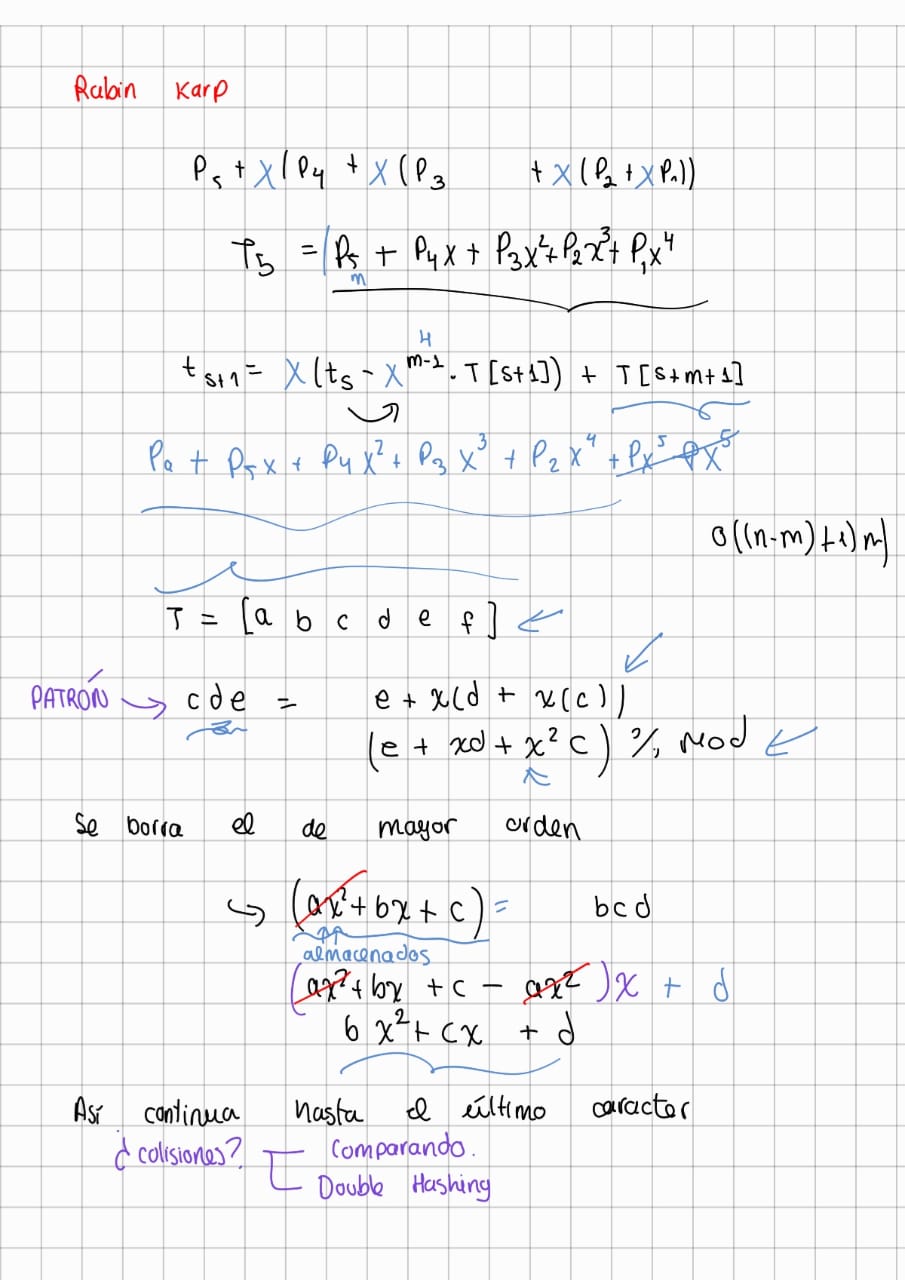 Rabin Karp
P₅ + X(P₄ + X(P₃ + X(P₂ + XP₁))
T₅ = (P₅ + P₄X + P₃X² + P₂X³ + P₁X⁴
m
4
t_{s+1} = X(t_s - X^{m-1} · T[s+1]) + T[s+m+1]
Pₐ + P₅X + P₄X² + P₃X³ + P₂X⁴ + PX⁵ - PX⁵
O((n-m)+1)m)
T = [a b c d e f]
PATRÓN → cde = e + x(d + x(c))
(e + xd + x²c) % Mod
Se borra el de mayor orden
↪ (ax² + bx + c) = bcd
almacenados
(ax² + bx + c - ax²)x + d
bx² + cx + d
Así continua hasta el último caracter
¿colisiones? Comparando.
Double Hashing